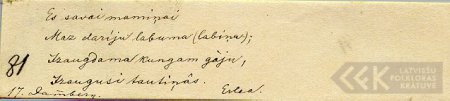 Es savai mamiņai
Maz dariju labuma (labiņa);
81
Izaugdama kungam gāju,
Izaugusi tautiņâs.
17. Evlea.
LATVIEŠU
FOLKLORAS
KRĀTUVE